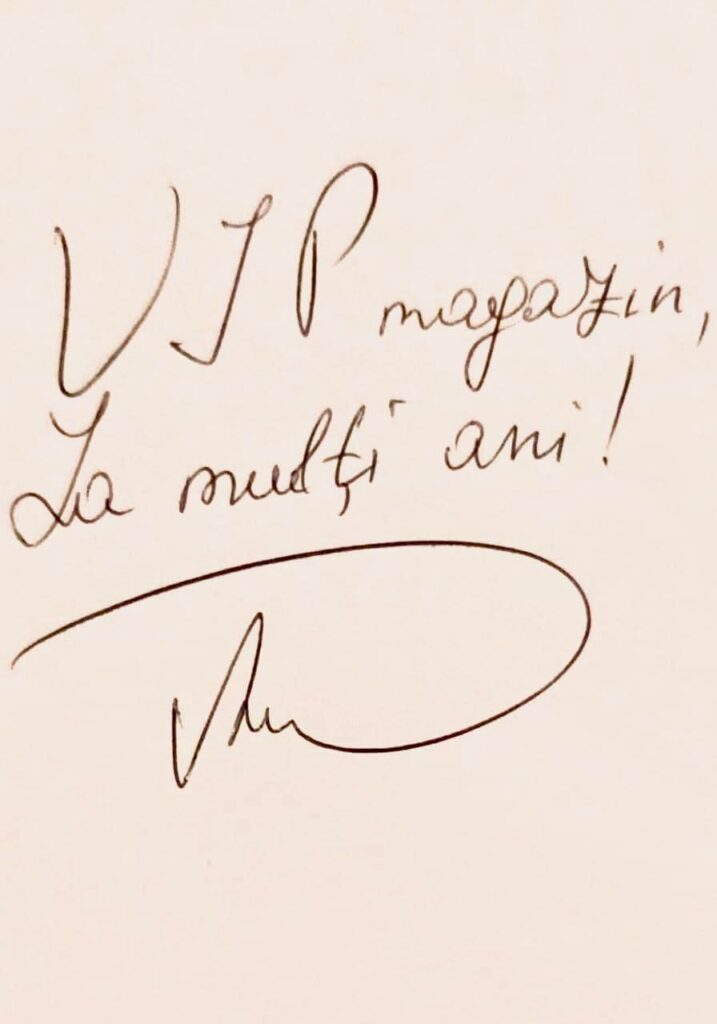 VIP magazin,
La mulți ani!